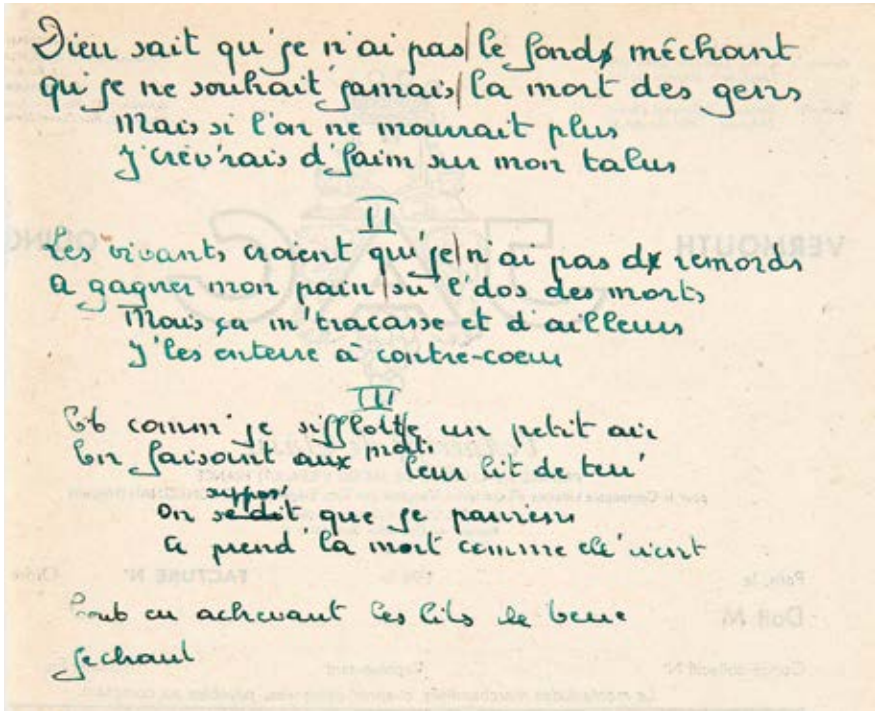 Dieu sait qu'je n'ai pas le fond méchant
qu'je ne souhait' jamais la mort des gens
Mais si l'on ne mourait plus
J'crèv'rais d'faim sur mon talus
II
Les vivants croient qu'je n'ai pas d' remords
A gagner mon pain su l'dos des morts
Mais ça m'tracasse et d'ailleurs
J'les enterre à contre-coeur
III
Et comm' je sifflotte un petit air
En faisant aux morts leur lit de terr'
On se dit suppos' que je parviens
A prend' la mort comme ell' vient
Tout en achevant les lits de terre
je chant
VERMOUTH
FACTURE N°
Doit M